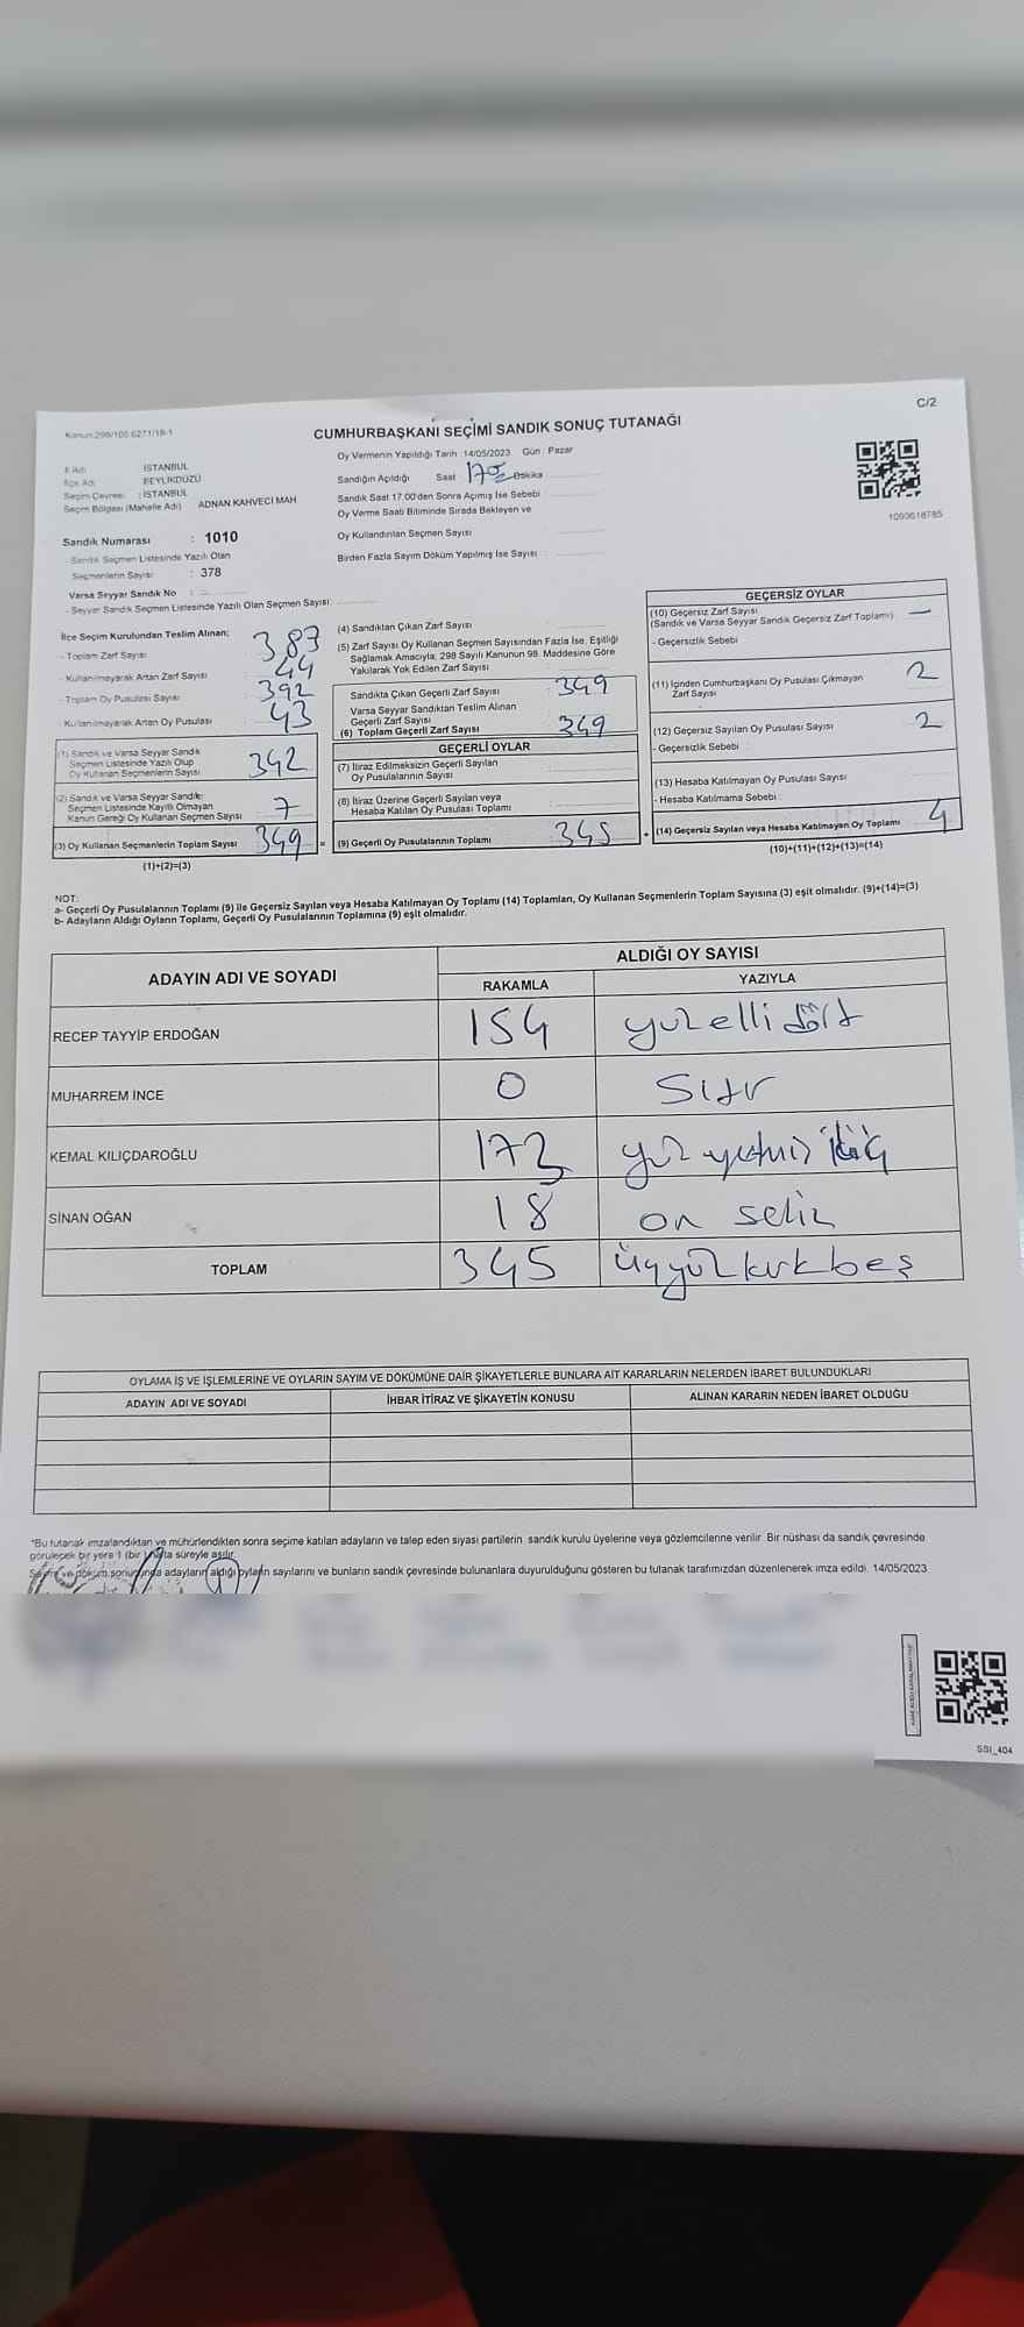 C/2
Kanun:298/105 6271/18-1
CUMHURBAŞKANI SEÇİMİ SANDIK SONUÇ TUTANAĞI
İl Adı : İSTANBUL
İlçe Adı : BEYLİKDÜZÜ
Seçim Çevresi : İSTANBUL
Seçim Bölgesi (Mahalle Adı) ADNAN KAHVECİ MAH
Sandık Numarası : 1010
- Sandık Seçmen Listesinde Yazılı Olan
Seçmenlerin Sayısı : 378
Varsa Seyyar Sandık No :
- Seyyar Sandık Seçmen Listesinde Yazılı Olan Seçmen Sayısı:
Oy Vermenin Yapıldığı Tarih :14/05/2023 Gün : Pazar
Sandığın Açıldığı Saat Dakika
Sandık Saat 17.00'den Sonra Açılmış İse Sebebi
Oy Verme Saati Bitiminde Sırada Bekleyen ve
Oy Kullandırılan Seçmen Sayısı
Birden Fazla Sayım Döküm Yapılmış İse Sayısı
1093618785
İlçe Seçim Kurulundan Teslim Alınan;
- Toplam Zarf Sayısı 387
- Kullanılmayarak Artan Zarf Sayısı 44
- Toplam Oy Pusulası Sayısı 392
- Kullanılmayarak Artan Oy Pusulası 43
(1) Sandık ve Varsa Seyyar Sandık
Seçmen Listesinde Yazılı Olup
Oy Kullanan Seçmenlerin Sayısı 342
(2) Sandık ve Varsa Seyyar Sandık
Seçmen Listesinde Kayıtlı Olmayan
Kanun Gereği Oy Kullanan Seçmen Sayısı 7
(3) Oy Kullanan Seçmenlerin Toplam Sayısı 349 =
(1)+(2)=(3)
(4) Sandıktan Çıkan Zarf Sayısı
(5) Zarf Sayısı Oy Kullanan Seçmen Sayısından Fazla İse, Eşitliği
Sağlamak Amacıyla, 298 Sayılı Kanunun 98. Maddesine Göre
Yakılarak Yok Edilen Zarf Sayısı
Sandıkta Çıkan Geçerli Zarf Sayısı 349
Varsa Seyyar Sandıktan Teslim Alınan
Geçerli Zarf Sayısı
(6) Toplam Geçerli Zarf Sayısı 349
GEÇERLİ OYLAR
(7) İtiraz Edilmeksizin Geçerli Sayılan
Oy Pusulalarının Sayısı
(8) İtiraz Üzerine Geçerli Sayılan veya
Hesaba Katılan Oy Pusulası Toplamı
(9) Geçerli Oy Pusulalarının Toplamı 345 +
GEÇERSİZ OYLAR
(10) Geçersiz Zarf Sayısı
(Sandık ve Varsa Seyyar Sandık Geçersiz Zarf Toplamı) —
- Geçersizlik Sebebi
(11) İçinden Cumhurbaşkanı Oy Pusulası Çıkmayan
Zarf Sayısı 2
(12) Geçersiz Sayılan Oy Pusulası Sayısı 2
- Geçersizlik Sebebi
(13) Hesaba Katılmayan Oy Pusulası Sayısı
- Hesaba Katılmama Sebebi :
(14) Geçersiz Sayılan veya Hesaba Katılmayan Oy Toplamı 4
(10)+(11)+(12)+(13)=(14)
NOT:
a- Geçerli Oy Pusulalarının Toplamı (9) ile Geçersiz Sayılan veya Hesaba Katılmayan Oy Toplamı (14) Toplamları, Oy Kullanan Seçmenlerin Toplam Sayısına (3) eşit olmalıdır. (9)+(14)=(3)
b- Adayların Aldığı Oyların Toplamı, Geçerli Oy Pusulalarının Toplamına (9) eşit olmalıdır.
ADAYIN ADI VE SOYADI
ALDIĞI OY SAYISI
RAKAMLA YAZIYLA
RECEP TAYYİP ERDOĞAN 154 yüzelli dört
MUHARREM İNCE 0 Sıfır
KEMAL KILIÇDAROĞLU 173 yüz yetmiş
SİNAN OĞAN 18 on sekiz
TOPLAM 345 üçyüz kırk beş
OYLAMA İŞ VE İŞLEMLERİNE VE OYLARIN SAYIM VE DÖKÜMÜNE DAİR ŞİKAYETLERLE BUNLARA AİT KARARLARIN NELERDEN İBARET BULUNDUKLARI
ADAYIN ADI VE SOYADI İHBAR İTİRAZ VE ŞİKAYETİN KONUSU ALINAN KARARIN NEDEN İBARET OLDUĞU
*Bu tutanak imzalandıktan ve mühürlendikten sonra seçime katılan adayların ve talep eden siyasi partilerin sandık kurulu üyelerine veya gözlemcilerine verilir. Bir nüshası da sandık çevresinde
görülecek bir yere 1 (bir) hafta süreyle asılır.
Sayım ve döküm sonucunda adayların aldığı oyların sayılarını ve bunların sandık çevresinde bulunanlara duyurulduğunu gösteren bu tutanak tarafımızdan düzenlenerek imza edildi. 14/05/2023
SSI_404